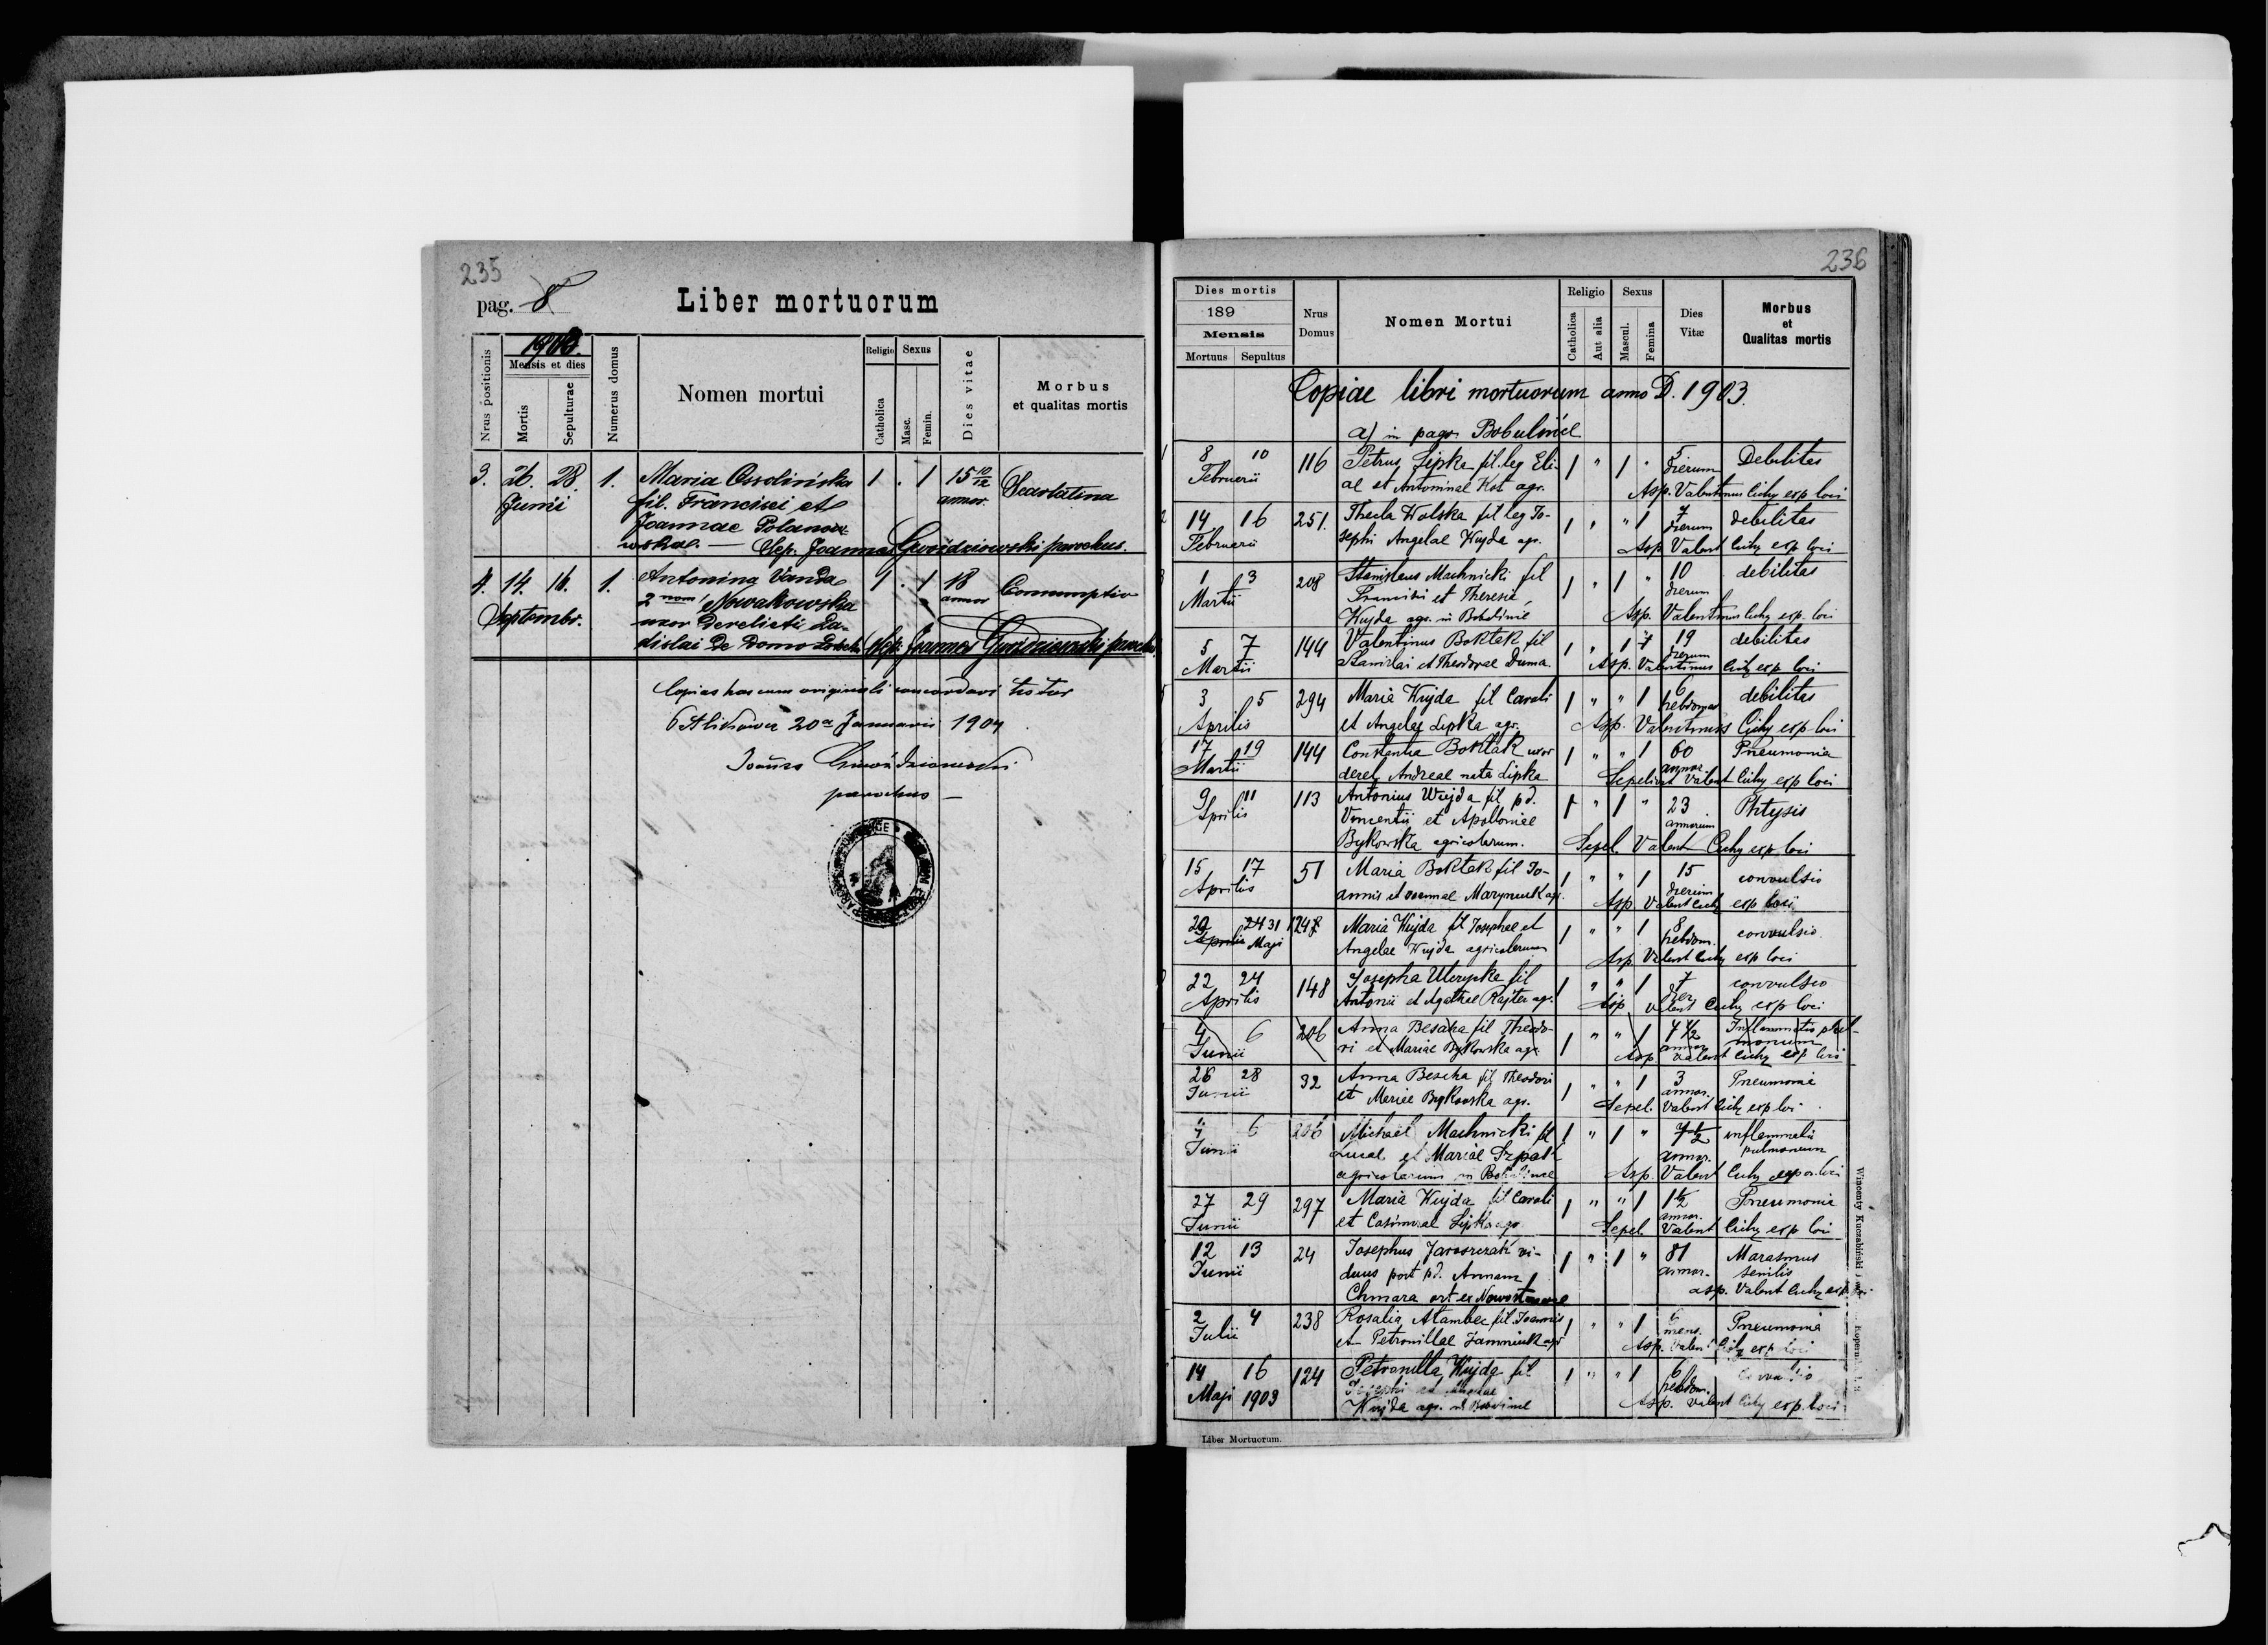 235
pag. 8
Liber mortuorum
Nrus positionis
1903.
Mensis et dies
Mortis
Sepulturae
Numerus domus
Nomen mortui
Religio
Catholica
Sexus
Masc.
Femin.
Dies vitae
Morbus
et qualitas mortis
3. 26. 28. 1. Maria Ossolińska 1 . 1 15 10/12 Scarlatina
Junii fil. Francisci et annor.
Joannae Polanow-
wskae. — Sep. Joannes Gwoździowski parochus.
4. 14. 16. 1. Antonina Vanda 1 . 1 18 Consumptio
Septembr. 2 nom. Nowakowska annor
uxor derelicti La-
dislai de domo Sep. Joannes Gwoździowski parochus
Copias has cum originali concordari testor
20a Januarii 1904
Gwoździowski
parochus —
236
Dies mortis
189
Mensis
Mortuus Sepultus
Nrus
Domus
Nomen Mortui
Religio
Catholica
Aut alia
Sexus
Mascul.
Femina
Dies
Vitæ
Morbus
et
Qualitas mortis
Copiae libri mortuorum anno D. 1903.
a) in pago Bobulińce
8 10 116 Petrus Lipka fil. leg Eli- 1 " 1 " 5 Debilitas
Februarii ae et Antoninae Kot agr. dierum
Asp. Valentinus Cichy exp loci
14 16 251. Thecla Wolska fil leg Jo- 1 " " 1 7 debilitas
Februarii sephi Angelae Wujda agr. dierum
Asp Valent Cichy exp loci
1 3 208 Stanislaus Machnicki fil 1 " 1 " 10 debilitas
Martii Francisci et Theresia dierum
Wujda agr. in Bobulince Asp. Valentinus Cichy exp. loci
5 7 144 Valentinus Boktak fil 1 " 1 19 debilitas
Martii Stanislai et Theodorae Duma dierum
Asp. Valentinus Cichy exp loci
3 5 294 Maria Wujda fil Caroli 1 " " 1 6 debilitas
Aprilis et Angelae Lipka agr. hebdomar
Asp. Valentinus Cichy exp loci
17 19 144 Constantia Boktak uxor 1 " " 1 60 Pneumonia
Martii derel. Andreae nata Lipka annor.
Sepelivit Valent Cichy exp loci
9 11 113 Antonius Wujda fil pd. 1 " 1 " 23 Phtysis
Aprilis Vincentii et Apolloniae annorum
Bykowska agricolarum. Sepel. Valent Cichy exp loci
15 17 51 Maria Boktak fil Jo- 1 " " 1 15 convulsio
Aprilis annis et Joannae Marynuk agr. dierum
Asp. Valent Cichy exp loci
29 24 31 1247 Maria Wujda fil Josephae et 1 " " 1 8 convulsio
Aprilis Maji Angelae Wujda agricolarum hebdom.
Asp Valent Cichy exp loci
22 24 148 Josepha fil 1 " " 1 7 convulsio
Aprilis Antonii et Agathae Rajter agr. dier
Asp Valent Cichy exp loci
4 6 206 Anna Besaha fil Theodo- 1 " " 1 7 1/2 Inflammatio pul-
Junii ri et Mariae Bykowska agr. annor monum
Asp Valent Cichy exp loci
26 28 32 Anna Besaha fil Theodori 1 " " 1 3 Pneumonia
Junii et Mariae Bykowska agr. annor.
Sepel. Valent Cichy exp loci
4 6 206 Michael Machnicki fil 1 " 1 " 7 1/2 inflammatio
Junii Lucae et Mariae Szpak annor. pulmonum
agricolarum in Bobulince Asp. Valent Cichy expos. loci
27 29 297 Maria Wujda fil Caroli 1 " " 1 1 1/2 Pneumonia
Junii et Casimirae Lipka agr annor.
Sepel. Valent Cichy exp loci
12 13 24 Josephus vi- 1 " 1 " 81 Marasmus
Junii duus post pd. Annam annor. senilis
Chmara ort ex Nowostawce asp. Valent Cichy exp loci
2 4 238 Rosalia Atambec fil Joannis 1 " " 1 6 Pneumonia
Julii et Petronillae agr mens.
Asp. Valent Cichy exp loci
14 16 124 Petronella Wujda fil 1 " " 1 6
Maji 1903 Josephi et hebdom.
Wujda agr. in Bobulince Asp. Valent Cichy exp. loci
Liber Mortuorum.
Wincenty Kuczabiński